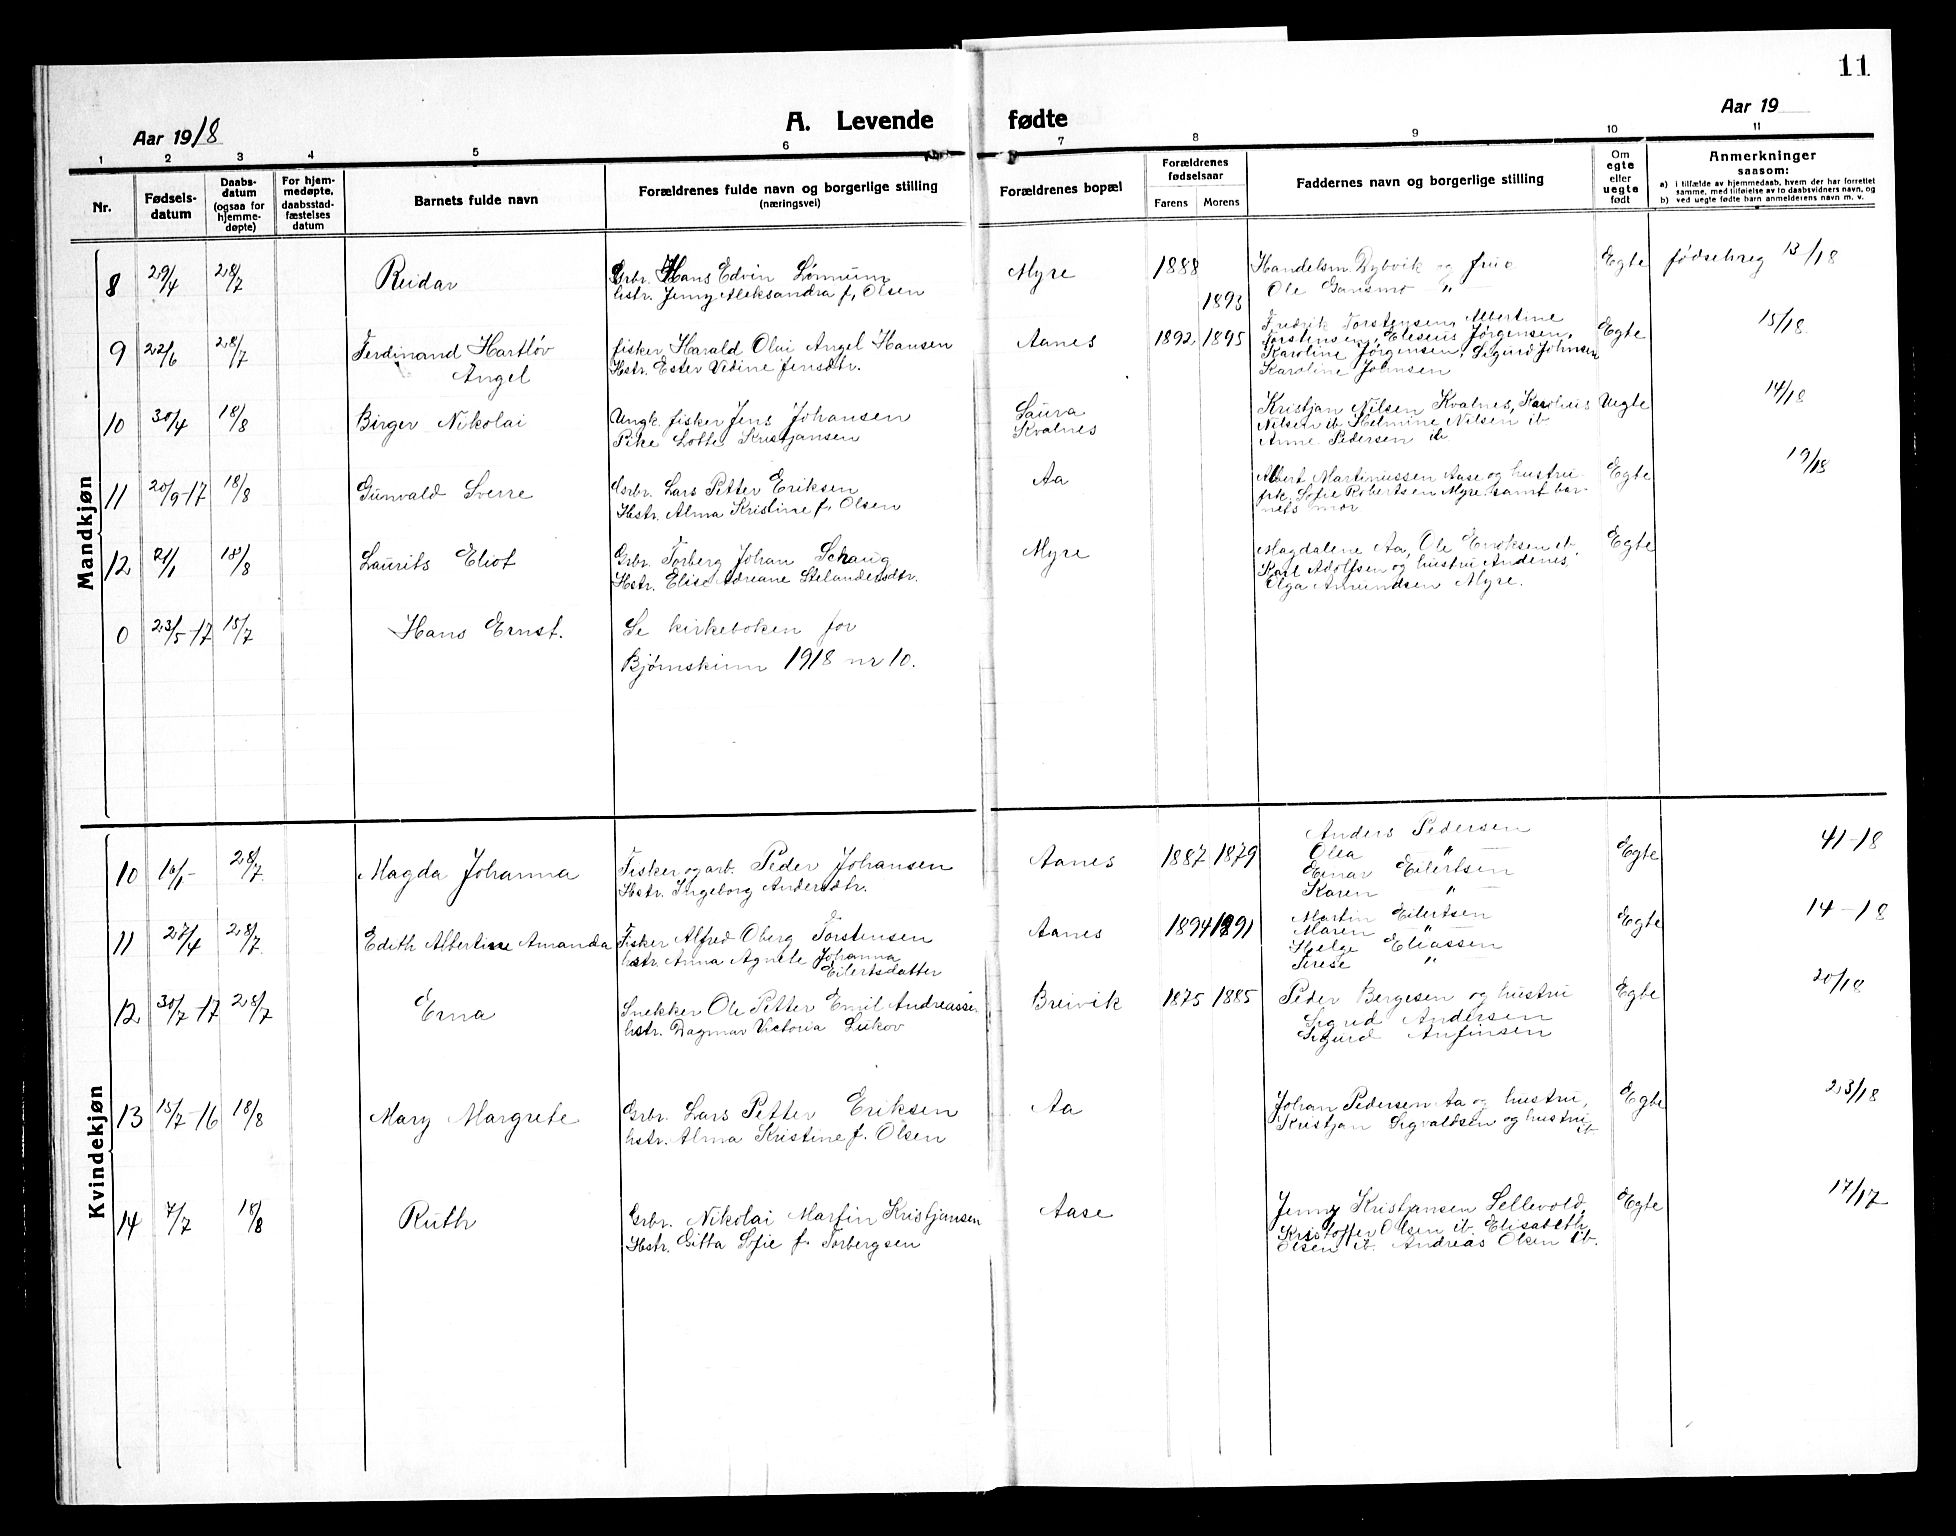 11
Aar 1918
A. Levende fødte
Aar 19
1 2 3 4 5 6 7 8 9 10 11
Nr.
Fødsels-
datum
Daabs-
datum
(ogsaa for
hjemme-
døpte)
For hjem-
medøpte,
daabsstad-
fæstelses
datum
Barnets fulde navn
Forældrenes fulde navn og borgerlige stilling
(næringsvei)
Forældrenes bopæl
Forældrenes
fødselsaar
Farens Morens
Faddernes navn og borgerlige stilling
Om
egte
eller
uegte
født
Anmerkninger
saasom:
a) i tilfælde av hjemmedaab, hvem der har forrettet
samme, med tilføielse av to daabsvidners navn, og
b) ved uegte fødte barn anmelderens navn m. v.
Mandkjøn
8 29/4 28/7 Reidar
Grbr. Hans Edvin Lønnum
hstr. Jenny Aleksandra f. Olsen
Myre 1888 1893
Handelsm. Dybvik og frue
Ole Gansmo "
Egte fødselsreg 13/18
9 22/6 28/7 Ferdinand Hartløv
Angel
fisker Harald Olui Angel Hansen
Hstr. Ester Vedine Jensdtr.
Aanes 1892 1895
Fredrik Torstensen, Albertine
Torstensen, Eleseus Jørgensen,
Karoline Jørgensen, Sigurd Johnsen
Karoline Johnsen
Egte 15/18
10 30/4 18/8 Birger Nikolai
Ungk. fisker Jens Johansen
Pike Lotte Kristjansen
Saura
Kvalnes
Kristjan Nilsen Kvalnes,
Nilsen ib. Helmine Nilsen ib
Anne Pedersen ib
Uegte 14/18
11 20/9-17 18/8 Gunvald Sverre
Grbr. Lars Petter Eriksen
Hstr. Alma Kristine f. Olsen
Aa
Albert Martinussen Aase og hustru
frk. Sofie Robertsen Myre samt bar-
nets mor
Egte 19/18
12 21/1 18/8 Laurits Eliot
Grbr. Torberg Johan Schaug
Hstr. Elise Adreane Stelandersdtr.
Myre
Magdalene Aa, Ole Eriksen ib.
Karl Adolfsen og hustru Andenes,
Olga Amundsen Myre.
Egte
0 23/5-17 15/7 Hans Ernst.
Se kirkeboken for
Bjørnskinn 1918 nr 10.
Kvindekjøn
10 16/1- 28/7 Magda Johanna
Fisker og arb. Peder Johansen
Hstr. Ingeborg Andersdtr.
Aanes 1887 1879
Anders Pedersen
Olea "
Einar Eilertsen
Karen "
Egte 41-18
11 27/4 28/7 Edith Albertine Amanda
Fisker Alfred Oberg Torstensen
hstr. Anna Agnete Johanna
Eilertsdatter
Aanes 1894 1891
Martin Eilertsen
Maren "
Helge Eliassen
Terese "
Egte 14-18
12 30/7-17 28/7 Erna
Snekker Ole Petter Emil Andreassen
hstr. Dagmar Victoria Lukov
Breivik 1875 1885
Peder Bergesen og hustru
Sigrid Andersen
Sigurd Anfinsen
Egte 20/18
13 15/7-16 18/8 Mary Margrete
Grbr. Lars Petter Eriksen
hstr. Alma Kristine f. Olsen
Aa
Johan Pedersen Aa og hustru,
Kristjan Sigvaldsen og hustru ib
Egte 23/18
14 7/7 18/8 Ruth
Grbr. Nikolai Martin Kristjansen
Hstr. Gitta Sofie f. Torbergsen
Aase
Jenny Kristjansen Sellevold,
Kristoffer Olsen ib. Elisabeth
Olsen ib. Andreas Olsen ib.
Egte 17/17